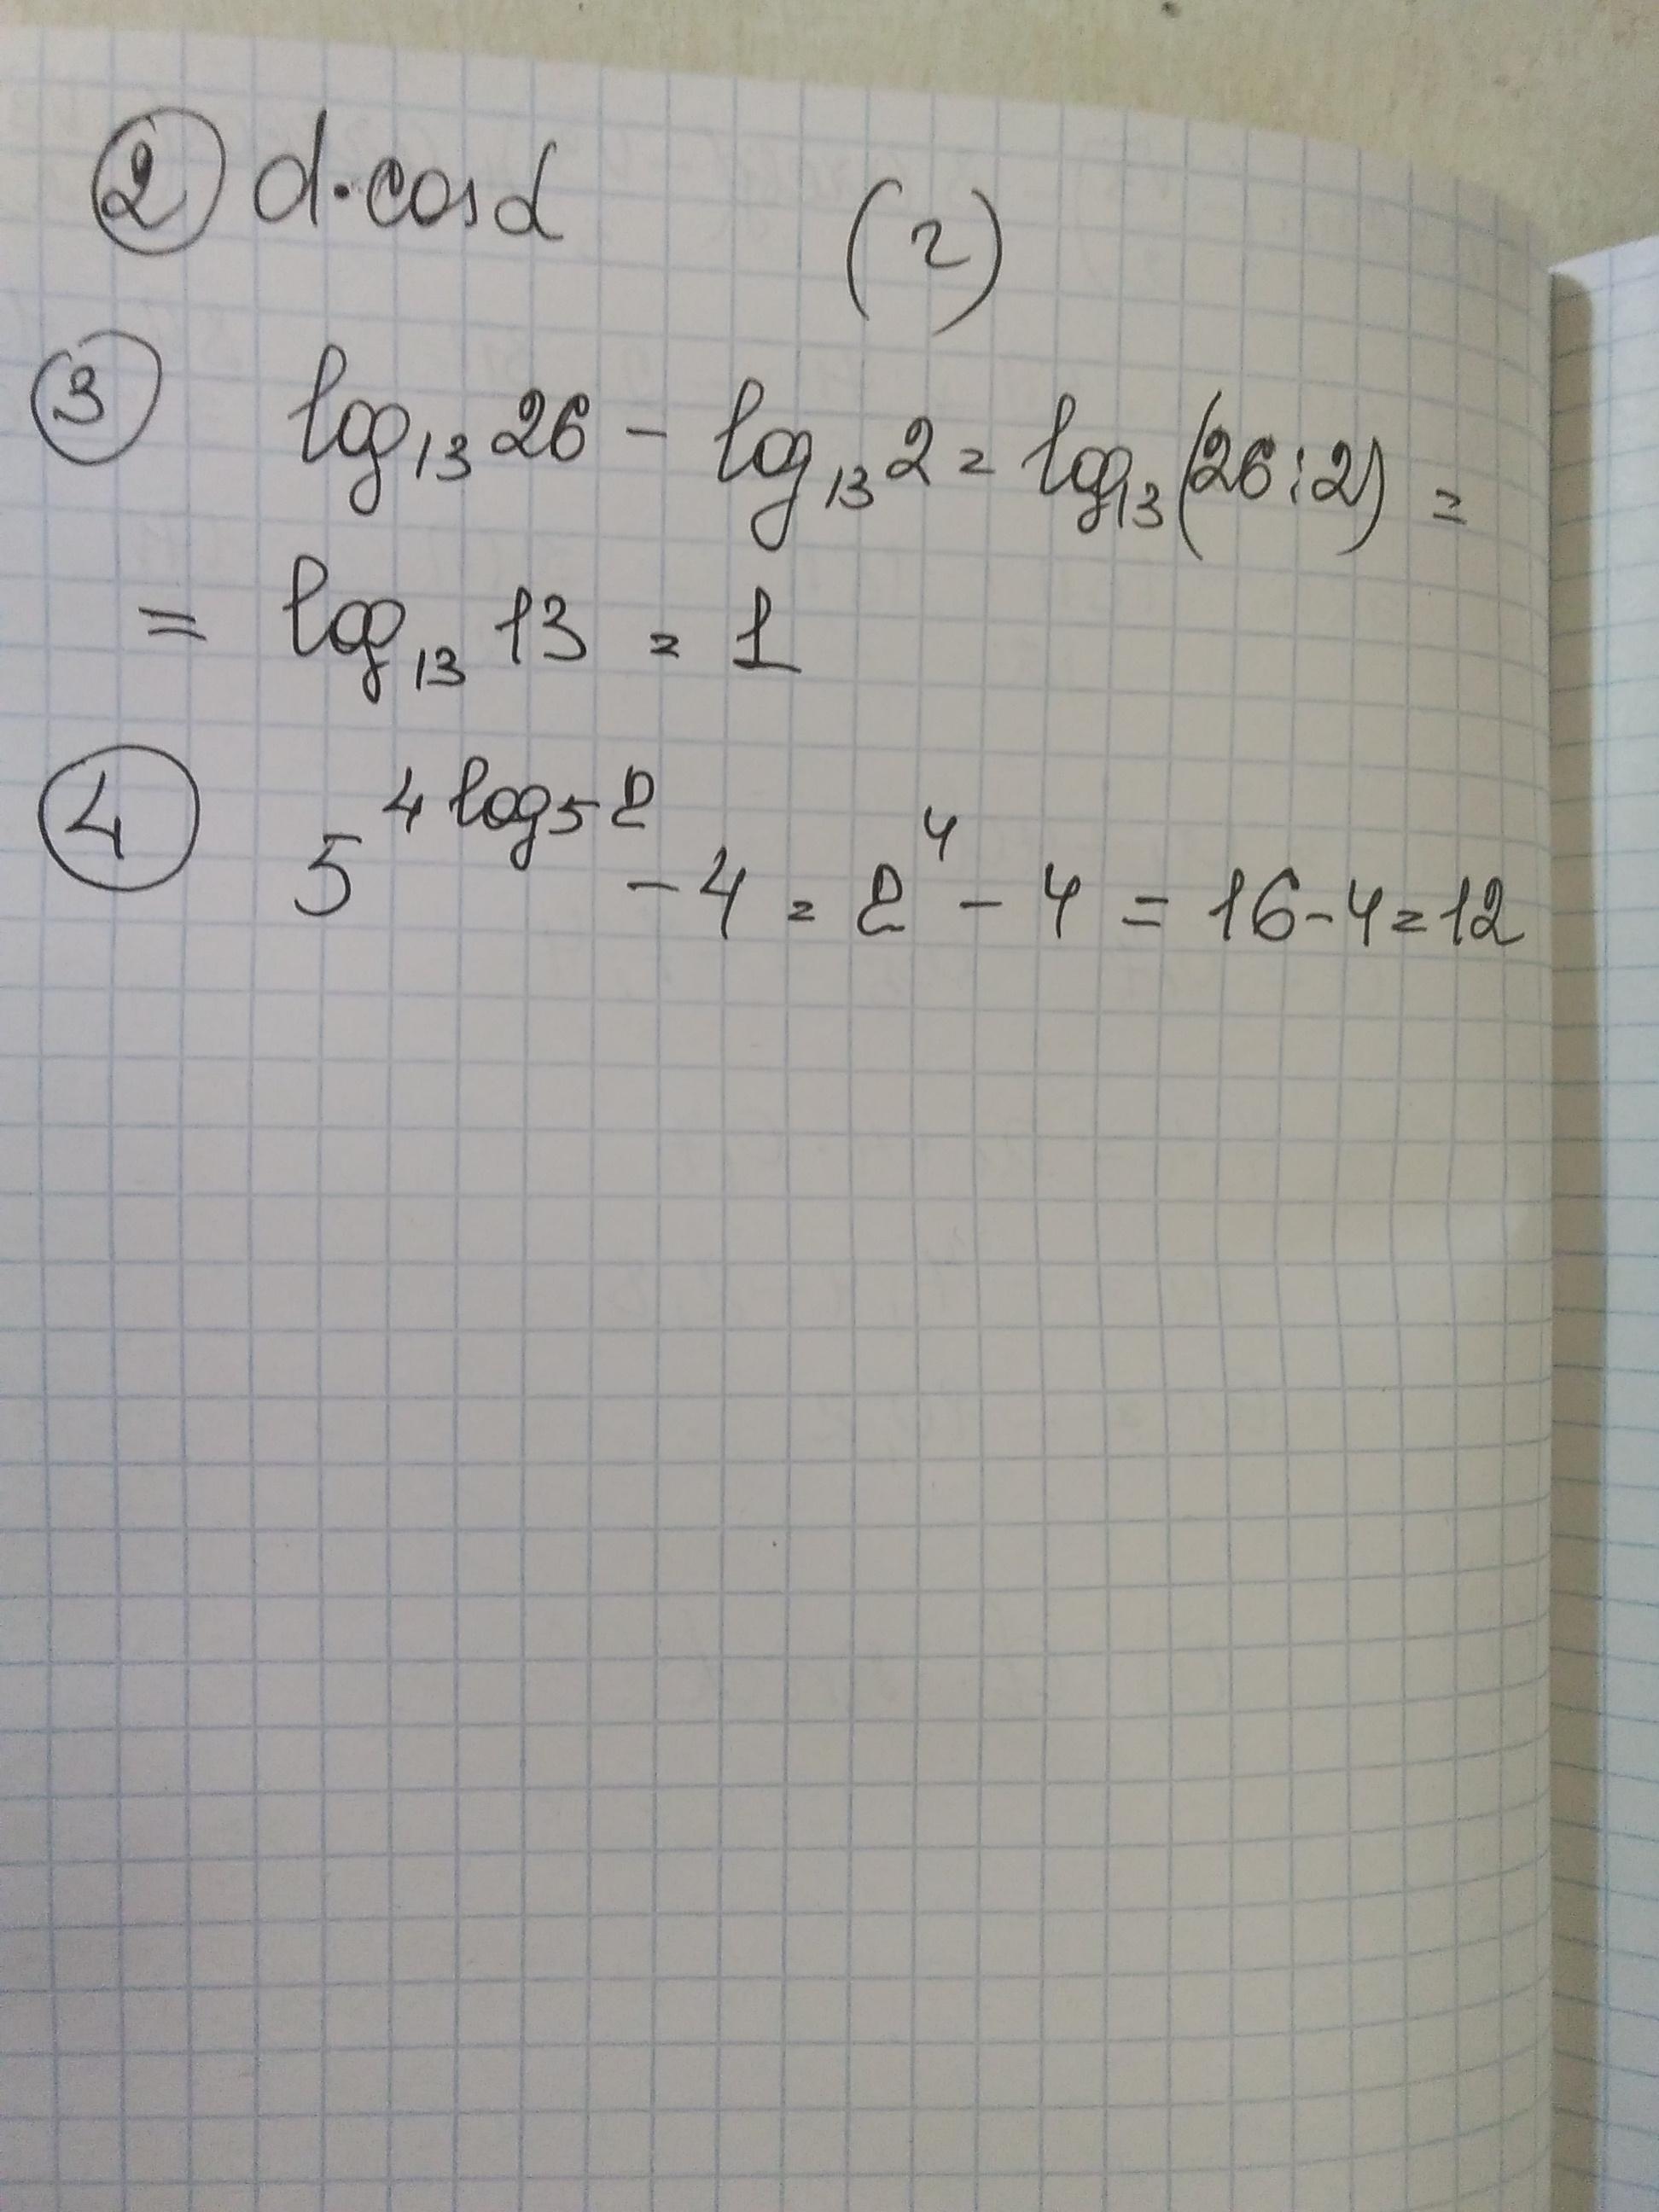 ② d·cosα (2)
③ log₁₃26 - log₁₃2 = log₁₃(26:2) =
= log₁₃13 = 1
④ 5^(4log₅2) - 4 = 2⁴ - 4 = 16 - 4 = 12